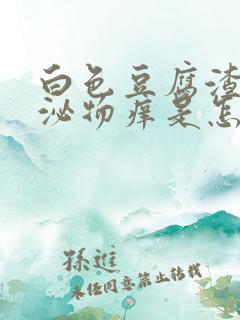 白色豆腐渣
泌物痒是怎
孫進
未经同意禁止转载